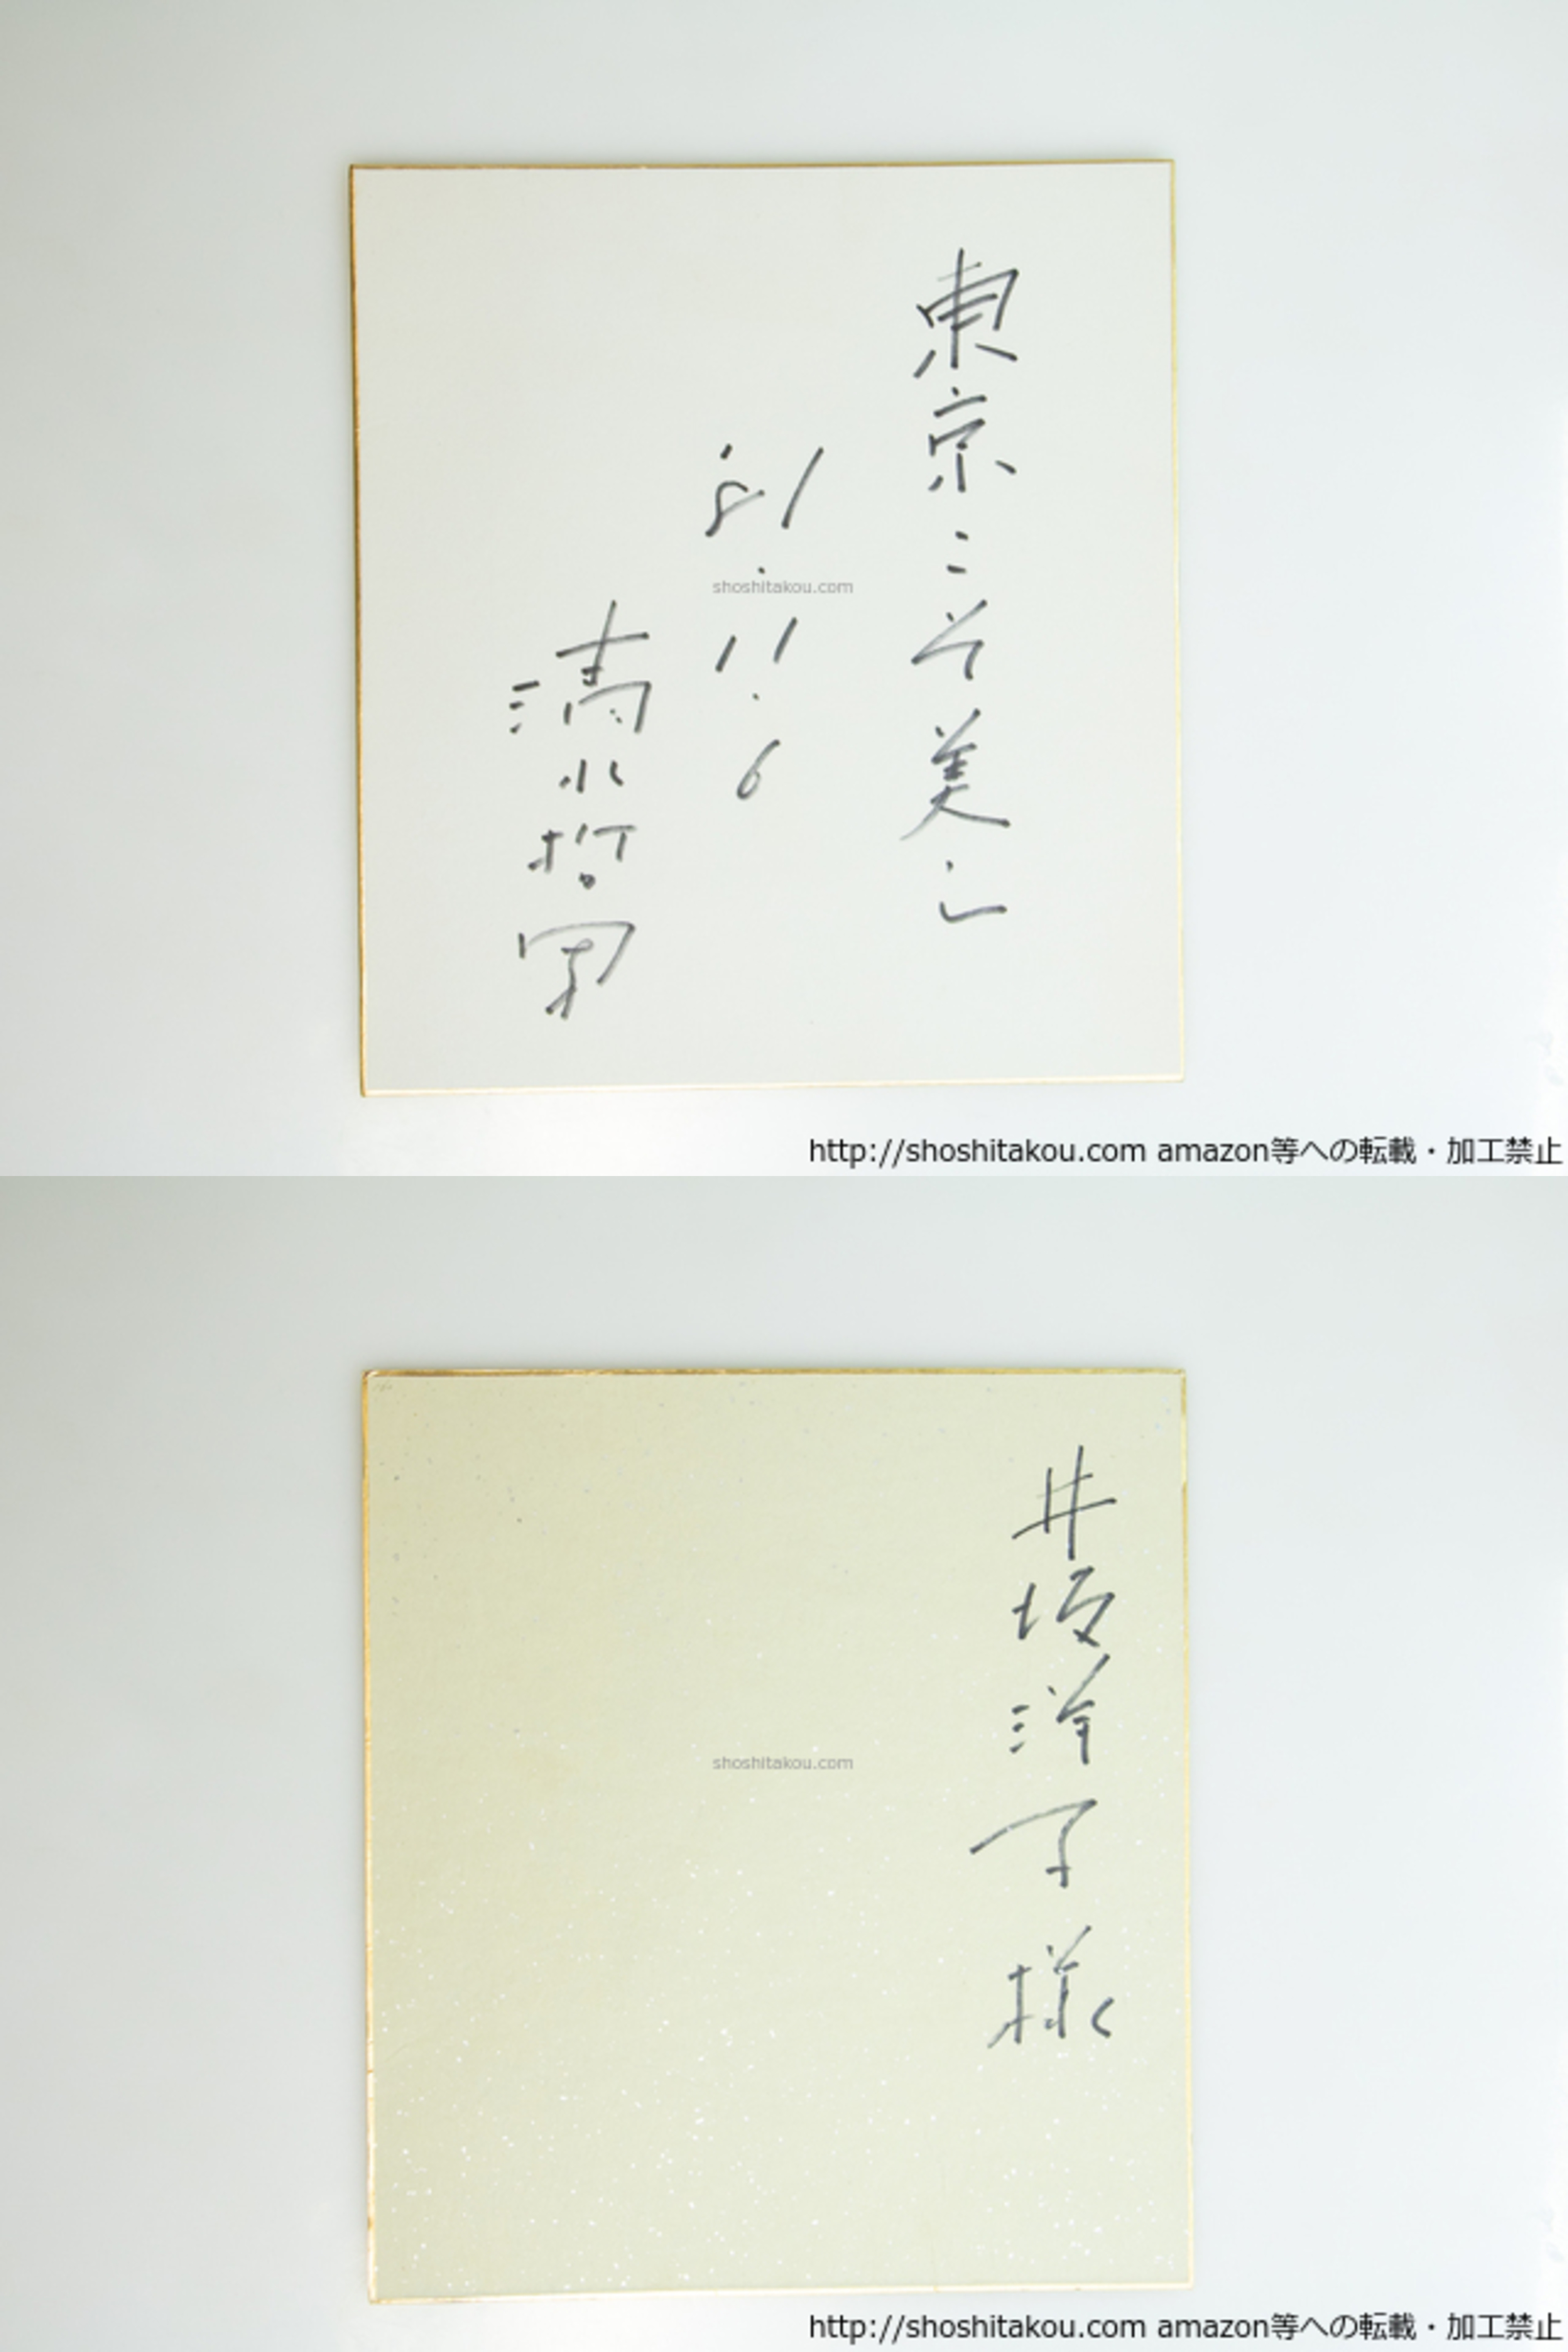 東京こそ美し
'81.11.6
清水哲男
shoshitakou.com
http://shoshitakou.com amazon等への転載・加工禁止
井坂洋子様
shoshitakou.com
http://shoshitakou.com amazon等への転載・加工禁止